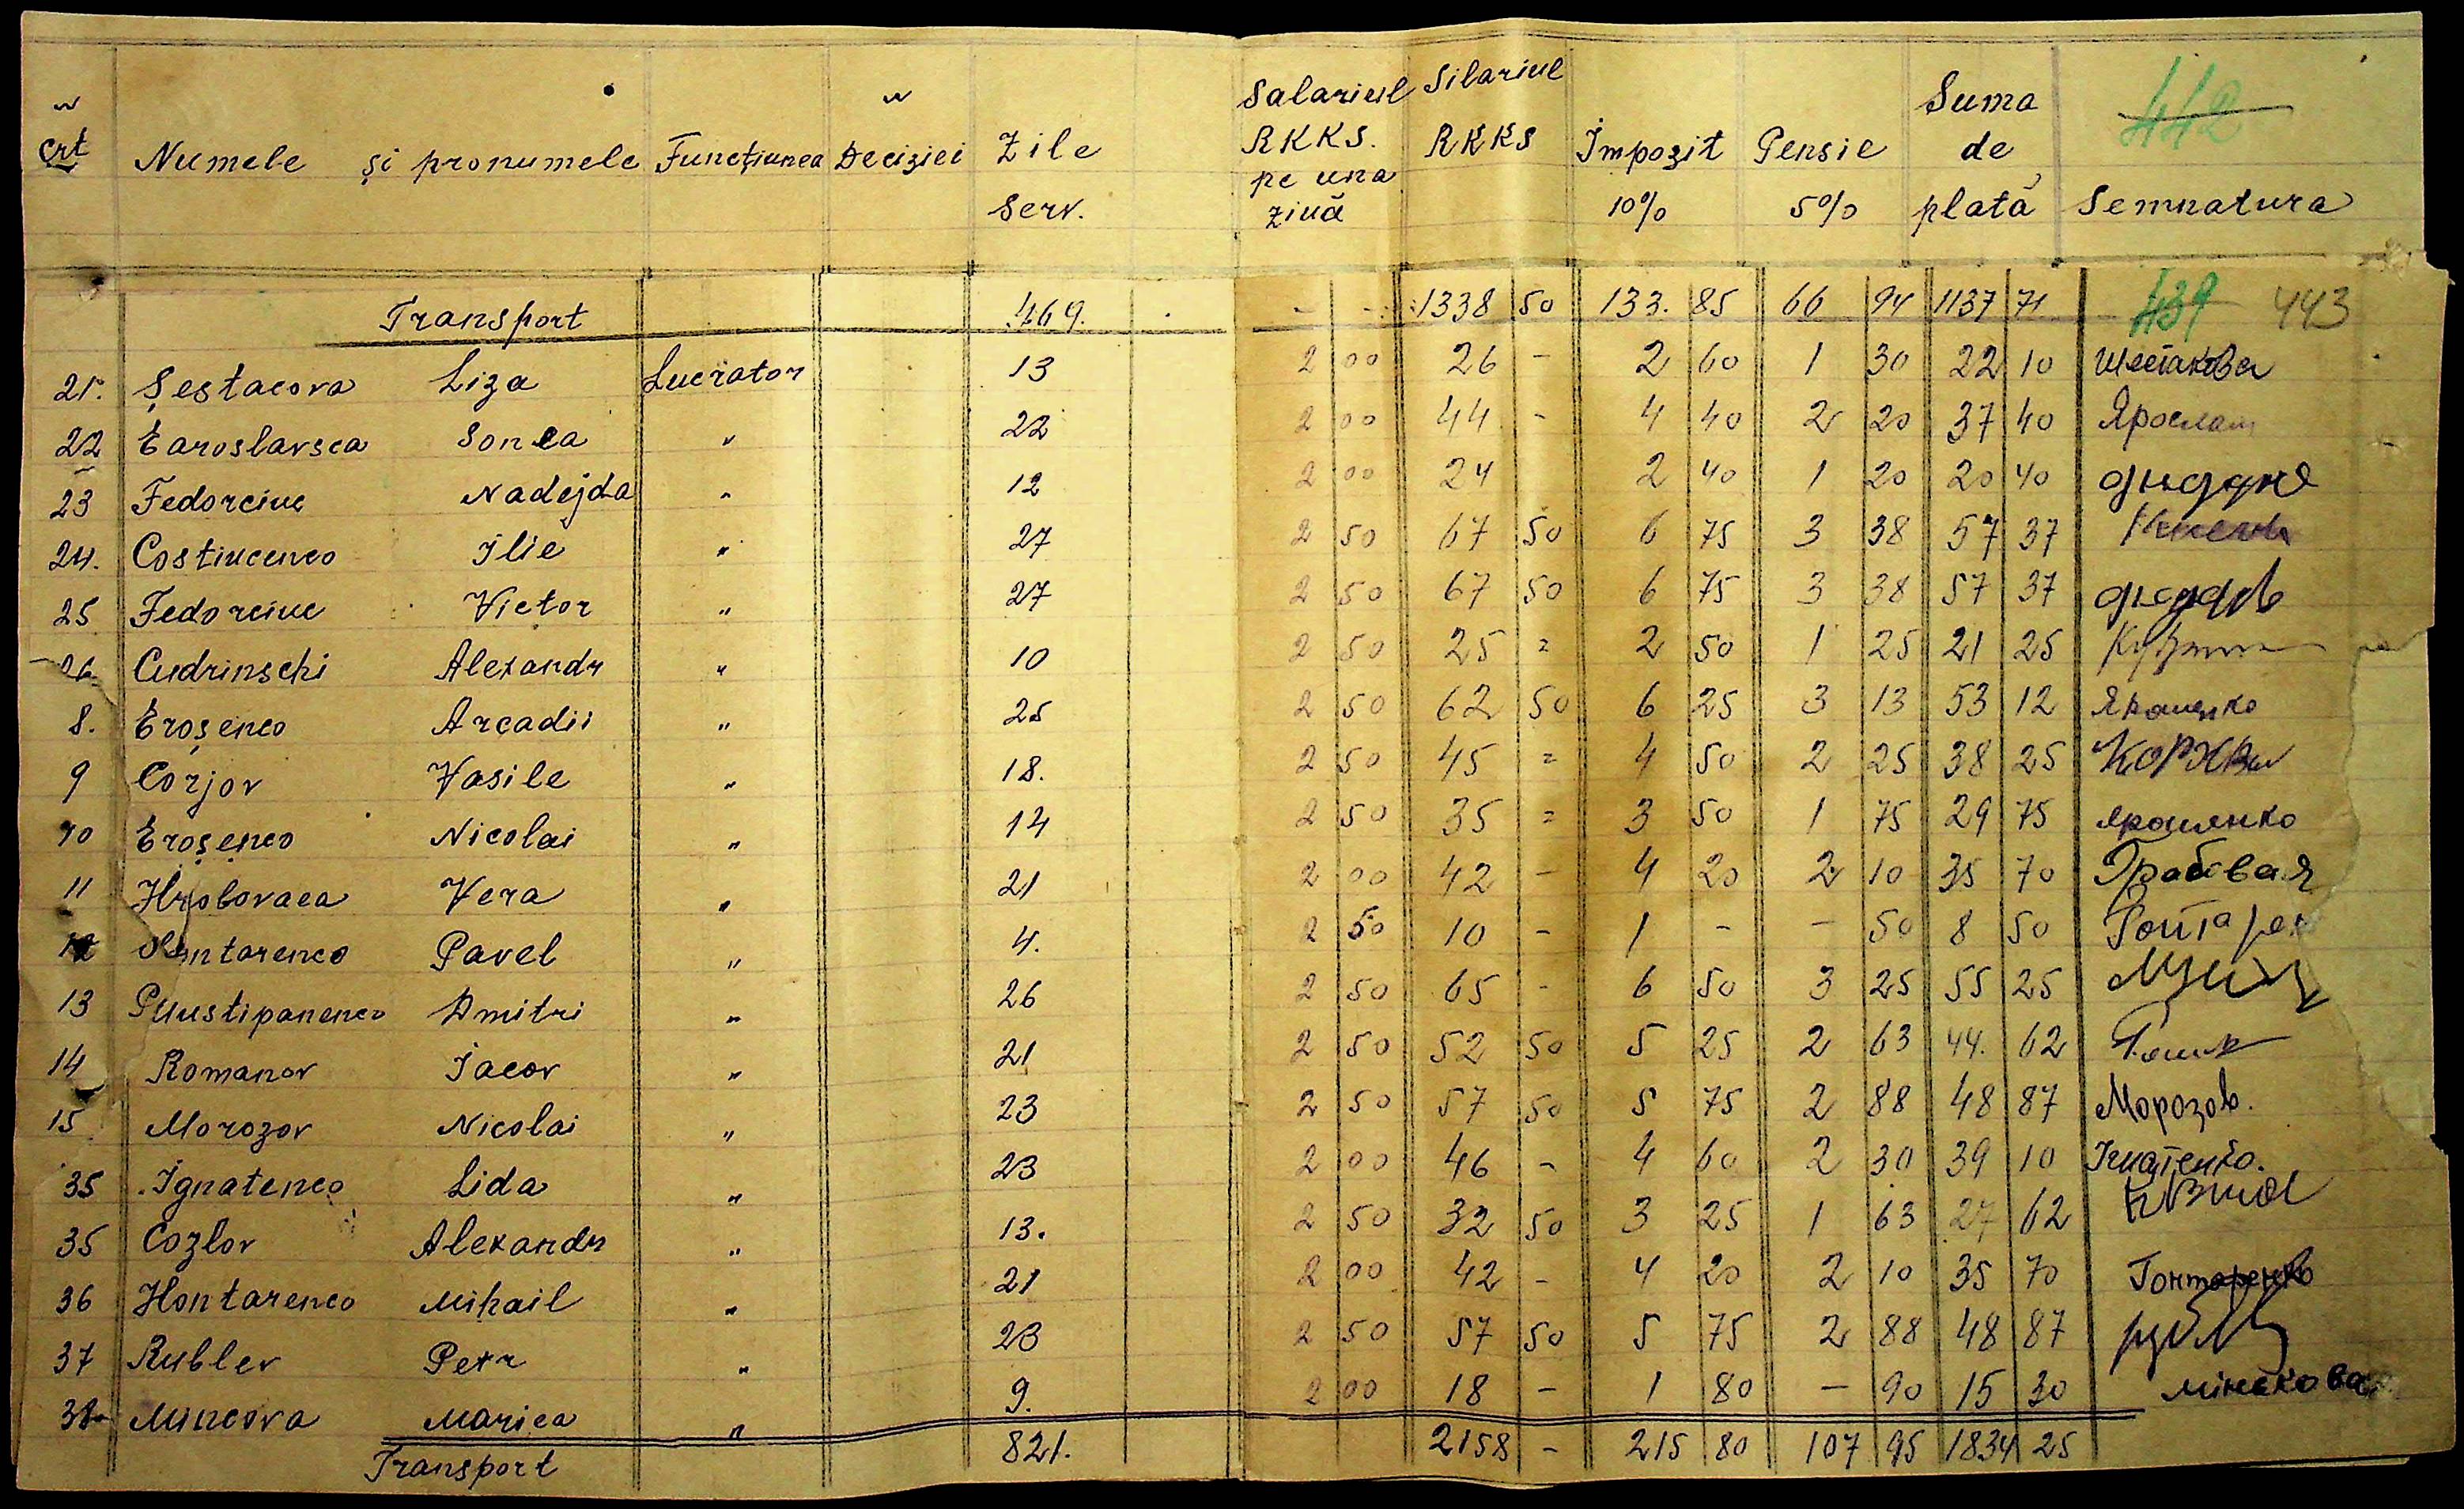 N crt Numele și pronumele Funcțiunea N Deciziei Zile serv. Salariul RKKS. pe una ziuă Silariul RKKS Impozit 10% Pensie 5% Suma de plată 442 Semnatura
Transport 469. - - 1338 50 133. 85 66 94 1137 71 439 443
21. Șestacova Liza Lucrator 13 2 00 26 - 2 60 1 30 22 10 Шестакова
22 Earoslavsca Sonea " 22 2 00 44 - 4 40 2 20 37 40
23 Fedorciuc Nadejda " 12 2 00 24 2 40 1 20 20 40
24. Costiucenco Ilie " 27 2 50 67 50 6 75 3 38 57 37
25 Fedorciuc Victor " 27 2 50 67 50 6 75 3 38 57 37
26 Cudrinschi Alexandr " 10 2 50 25 = 2 50 1 25 21 25
8. Eroșenco Arcadii " 25 2 50 62 50 6 25 3 13 53 12 Ярошенко
9 Corjov Vasile " 18. 2 50 45 = 4 50 2 25 38 25
10 Eroșenco Nicolai " 14 2 50 35 = 3 50 1 75 29 75 Ярошенко
11 Hrobovaea Vera " 21 2 00 42 - 4 20 2 10 35 70 Грабовая
12 Pavel " 4. 2 50 10 - 1 - - 50 8 50
13 Pustipanenco Dmitri " 26 2 50 65 - 6 50 3 25 55 25
14 Romanov Iacov " 21 2 50 52 50 5 25 2 63 44. 62
15 Morozov Nicolai " 23 2 50 57 50 5 75 2 88 48 87 Морозов.
35 Ignatenco Lida " 23 2 00 46 - 4 60 2 30 39 10 Ігнатенко.
35 Cozlov Alexandr " 13. 2 50 32 50 3 25 1 63 27 62
36 Hontarenco Mihail " 21 2 00 42 - 4 20 2 10 35 70 Гонтаренко
37 Rublev Petr " 23 2 50 57 50 5 75 2 88 48 87
38 Mincova Mariea " 9. 2 00 18 - 1 80 - 90 15 30 Мінькова
Transport 821. 2158 - 215 80 107 95 1834 25